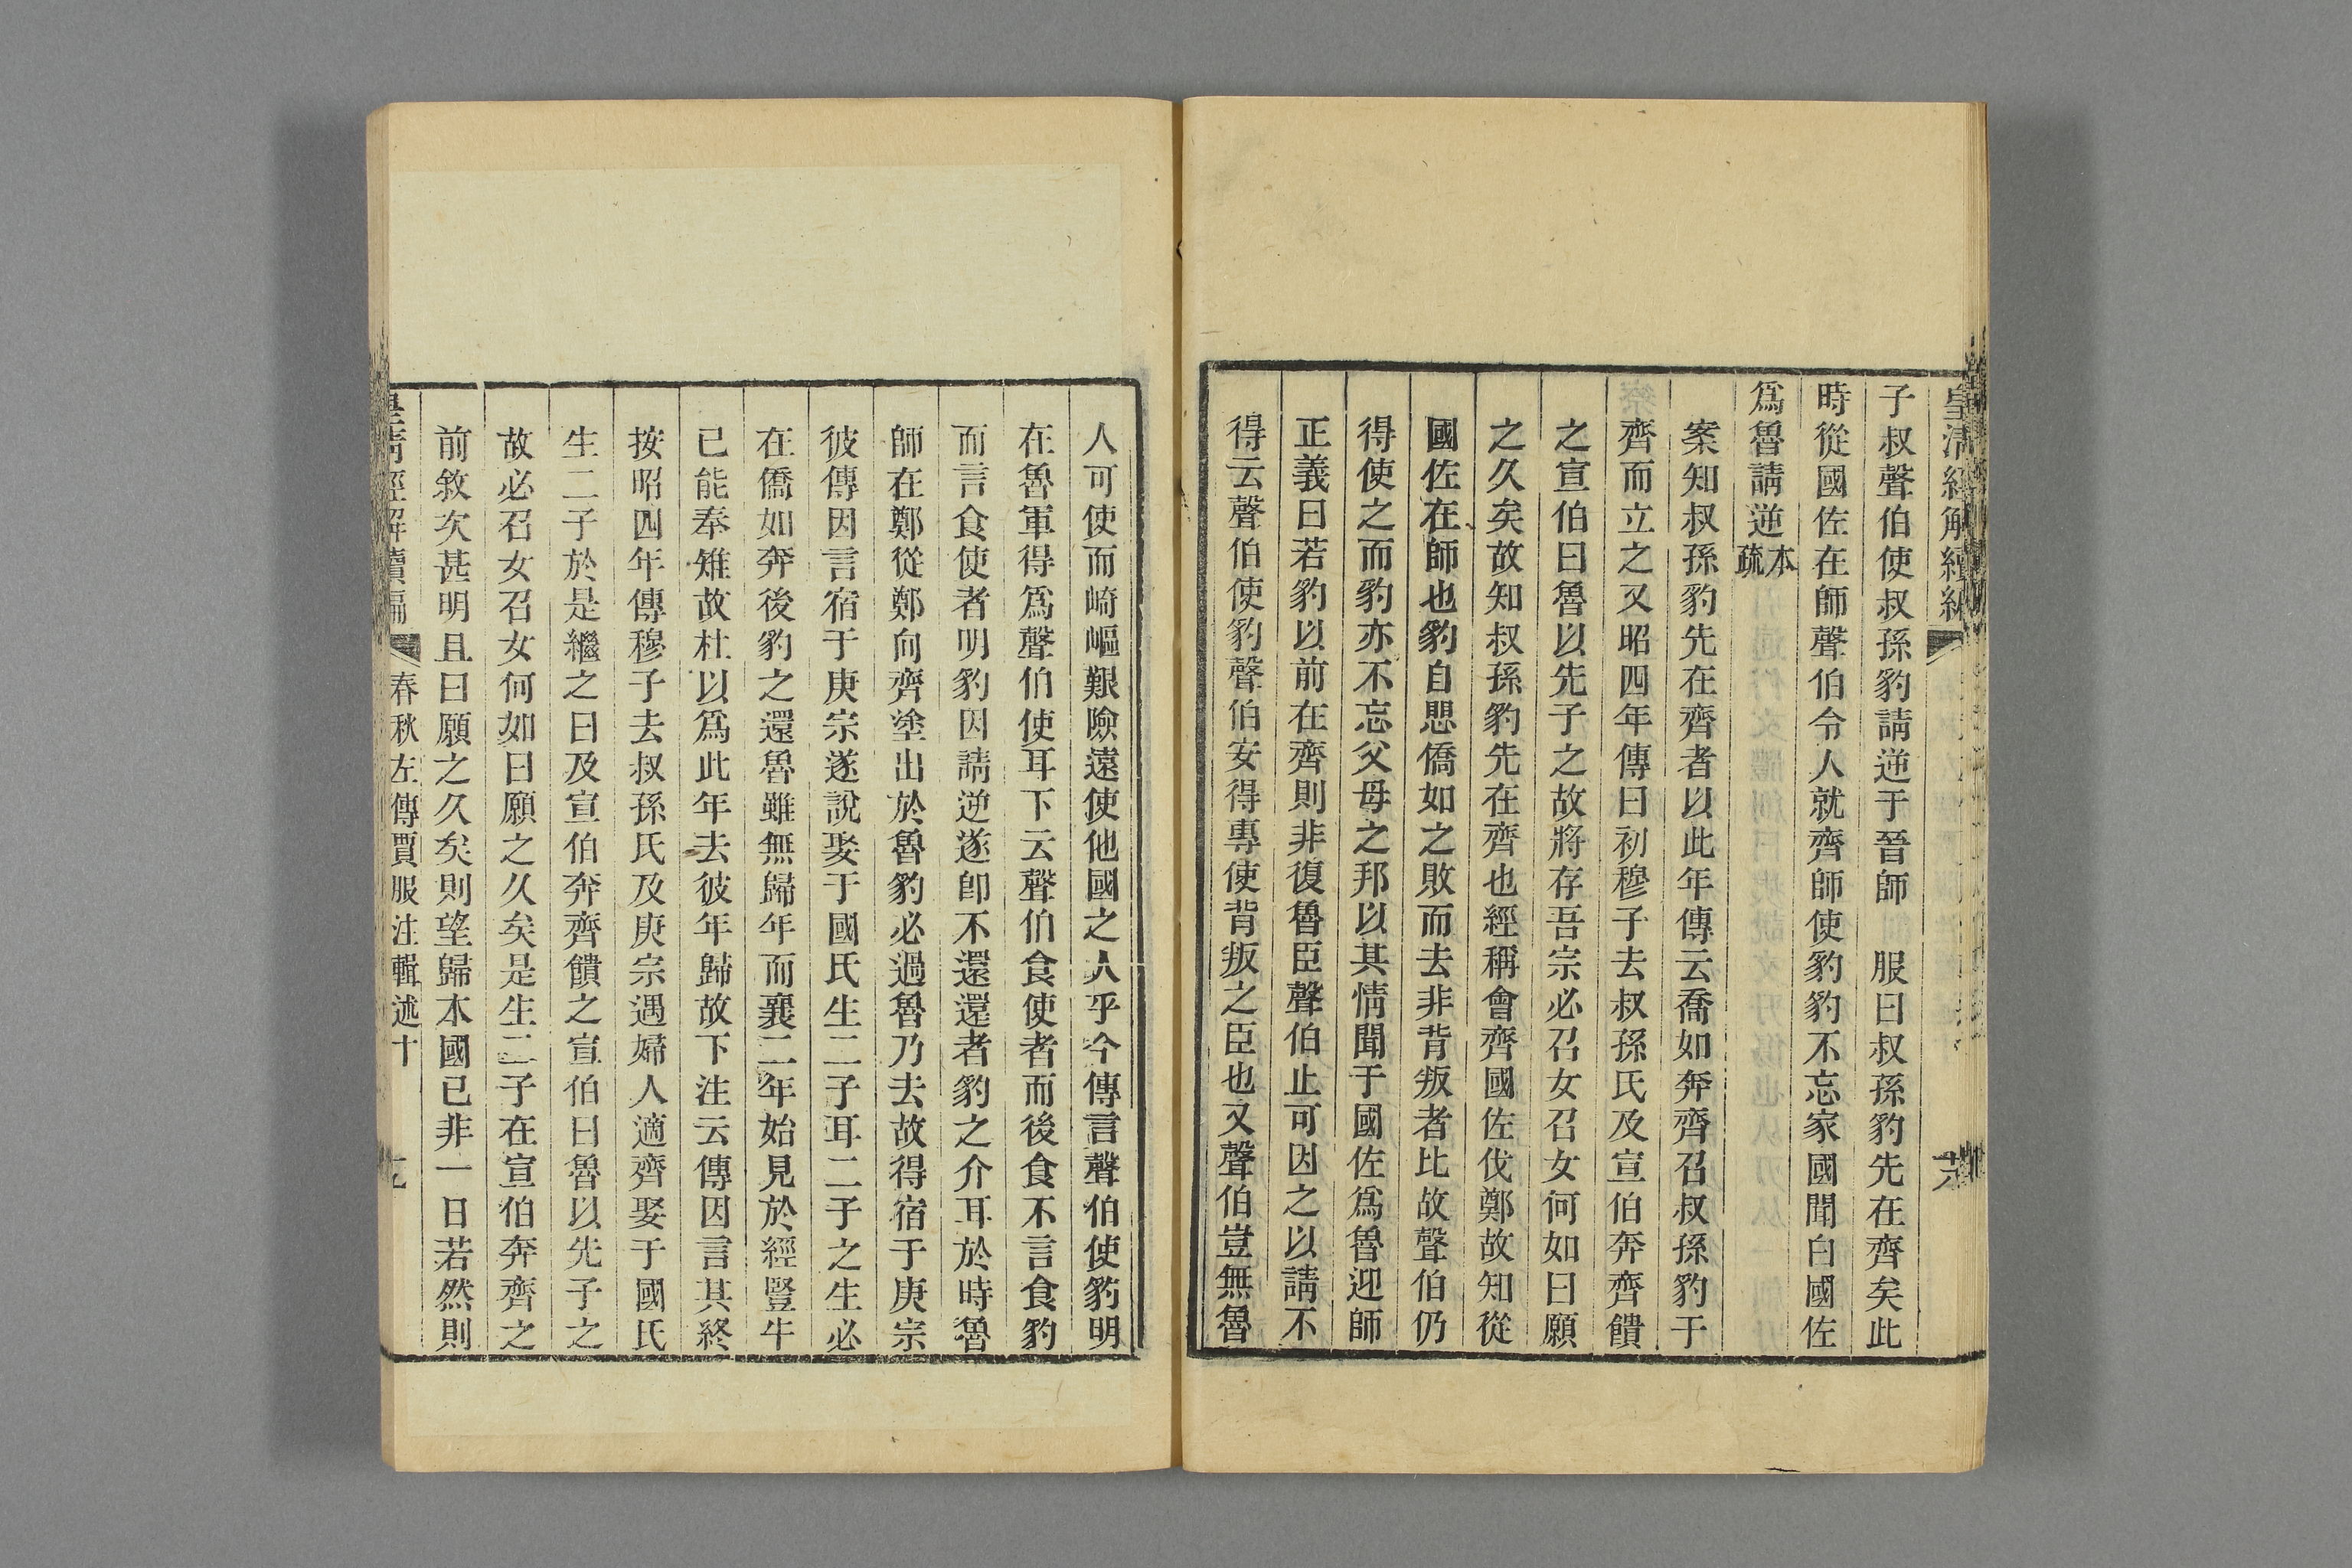 皇清經解續編
子叔聲伯使叔孫豹請逆于晉師　服曰叔孫豹先在齊矣此
時從國佐在師聲伯令人就齊師使豹豹不忘家國聞白國佐
爲魯請逆本疏
案知叔孫豹先在齊者以此年傳云喬如奔齊召叔孫豹于
齊而立之又昭四年傳曰初穆子去叔孫氏及宣伯奔齊饋
之宣伯曰魯以先子之故將存吾宗必召女召女何如曰願
之久矣故知叔孫豹先在齊也經稱會齊國佐伐鄭故知從
國佐在師也豹自思僑如之敗而去非背叛者比故聲伯仍
得使之而豹亦不忘父母之邦以其情聞于國佐爲魯迎師
正義曰若豹以前在齊則非復魯臣聲伯止可因之以請不
得云聲伯使豹聲伯安得專使背叛之臣也又聲伯豈無魯
人可使而崎嶇艱險遠使他國之人乎今傳言聲伯使豹明
在魯軍得爲聲伯使耳下云聲伯食使者而後食不言食豹
而言食使者明豹因請逆遂卽不還還者豹之介耳於時魯
師在鄭從鄭向齊塗出於魯豹必過魯乃去故得宿于庚宗
彼傳因言宿于庚宗遂說娶于國氏生二子耳二子之生必
在僑如奔後豹之還魯雖無歸年而襄二年始見於經豎牛
已能奉雉故杜以爲此年去彼年歸故下注云傳因言其終
按昭四年傳穆子去叔孫氏及庚宗遇婦人適齊娶于國氏
生二子於是繼之曰及宣伯奔齊饋之宣伯曰魯以先子之
故必召女召女何如曰願之久矣是生二子在宣伯奔齊之
前敘次甚明且曰願之久矣則望歸本國已非一日若然則
皇清經解續編　春秋左傳賈服注輯述十